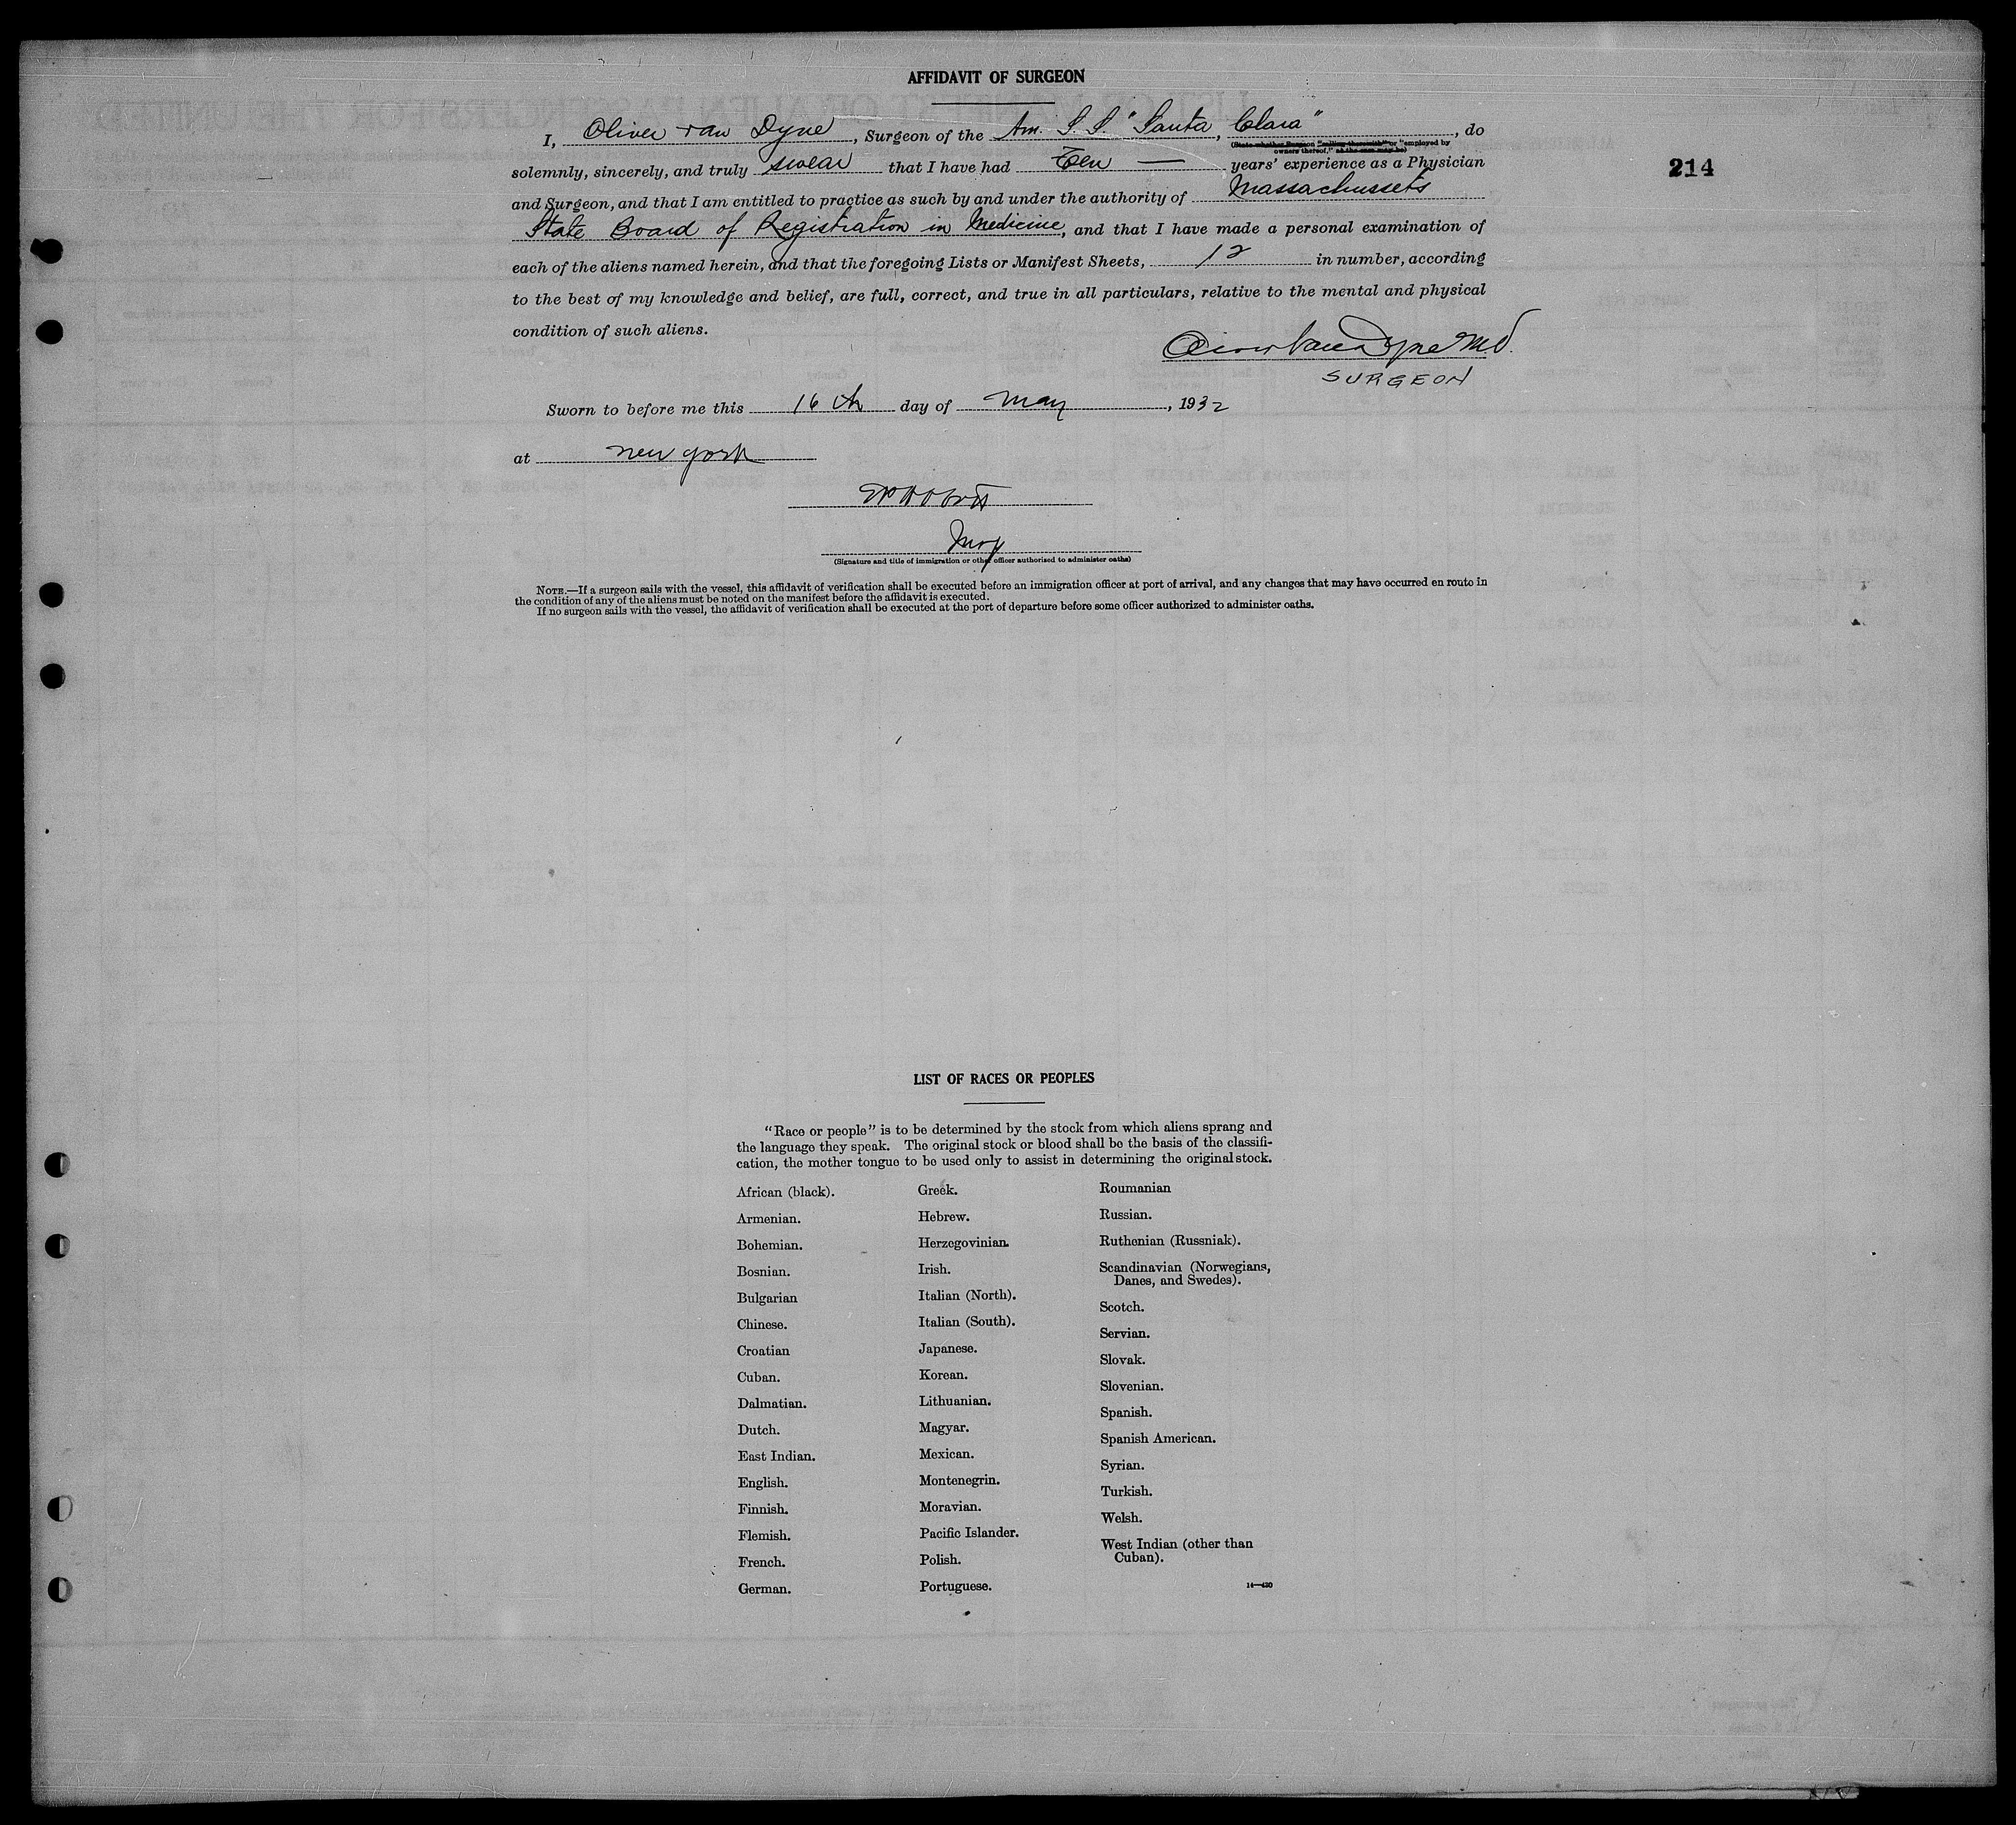 AFFIDAVIT OF SURGEON
I, Oliver van Dyne, Surgeon of the Am. S. S. "Santa Clara", do
(State whether Surgeon "sailing therewith" or "employed by
owners thereof," as the case may be)
214
solemnly, sincerely, and truly swear that I have had Ten — years' experience as a Physician
and Surgeon, and that I am entitled to practice as such by and under the authority of Massachussets
State Board of Registration in Medicine, and that I have made a personal examination of
each of the aliens named herein, and that the foregoing Lists or Manifest Sheets, 12 in number, according
to the best of my knowledge and belief, are full, correct, and true in all particulars, relative to the mental and physical
condition of such aliens.
Oliver van Dyne M.D.
SURGEON
Sworn to before me this 16th day of May, 1932
at New York
(Signature and title of immigration or other officer authorized to administer oaths)
NOTE.—If a surgeon sails with the vessel, this affidavit of verification shall be executed before an immigration officer at port of arrival, and any changes that may have occurred en route in
the condition of any of the aliens must be noted on the manifest before the affidavit is executed.
If no surgeon sails with the vessel, the affidavit of verification shall be executed at the port of departure before some officer authorized to administer oaths.
LIST OF RACES OR PEOPLES
"Race or people" is to be determined by the stock from which aliens sprang and
the language they speak. The original stock or blood shall be the basis of the classifi-
cation, the mother tongue to be used only to assist in determining the original stock.
African (black).
Armenian.
Bohemian.
Bosnian.
Bulgarian
Chinese.
Croatian
Cuban.
Dalmatian.
Dutch.
East Indian.
English.
Finnish.
Flemish.
French.
German.
Greek.
Hebrew.
Herzegovinian.
Irish.
Italian (North).
Italian (South).
Japanese.
Korean.
Lithuanian.
Magyar.
Mexican.
Montenegrin.
Moravian.
Pacific Islander.
Polish.
Portuguese.
Roumanian
Russian.
Ruthenian (Russniak).
Scandinavian (Norwegians,
Danes, and Swedes).
Scotch.
Servian.
Slovak.
Slovenian.
Spanish.
Spanish American.
Syrian.
Turkish.
Welsh.
West Indian (other than
Cuban).
14—420